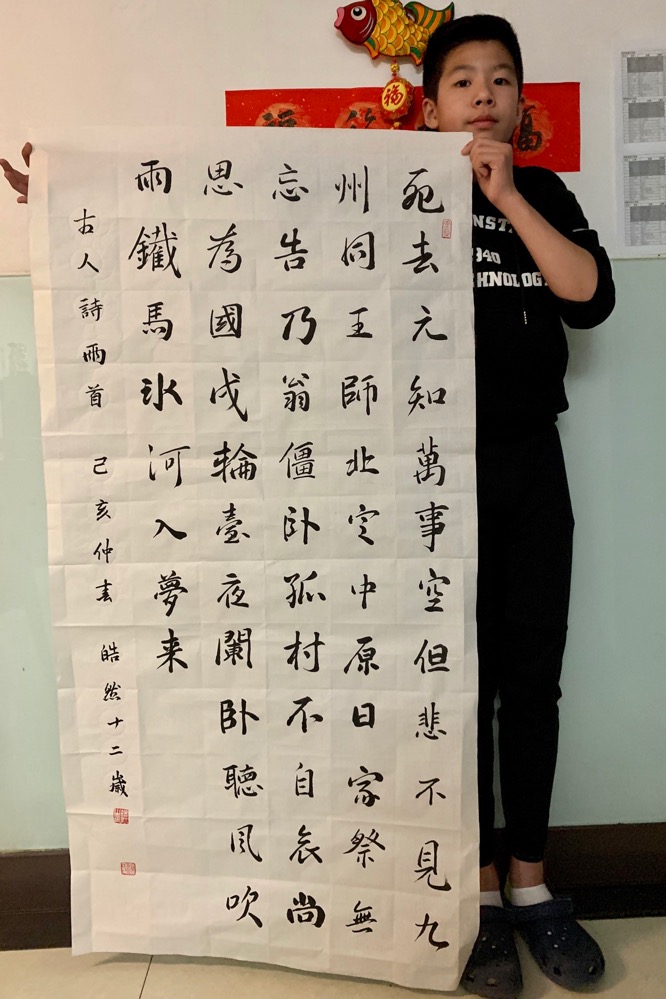 死去元知萬事空但悲不見九
州同王師北定中原日家祭無
忘告乃翁僵卧孤村不自哀尚
思為國戍輪臺夜闌卧聽風吹
雨鐵馬冰河入夢来
古人詩兩首 己亥仲春 皓然十二歲
福
福
NST
940
CHNOLOG